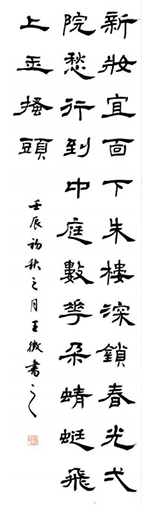 新妝宜面下朱樓深鎖春光弌
院愁行到中庭數花朵蜻蜓飛
上玉搔頭
壬辰初秋之月王微書之